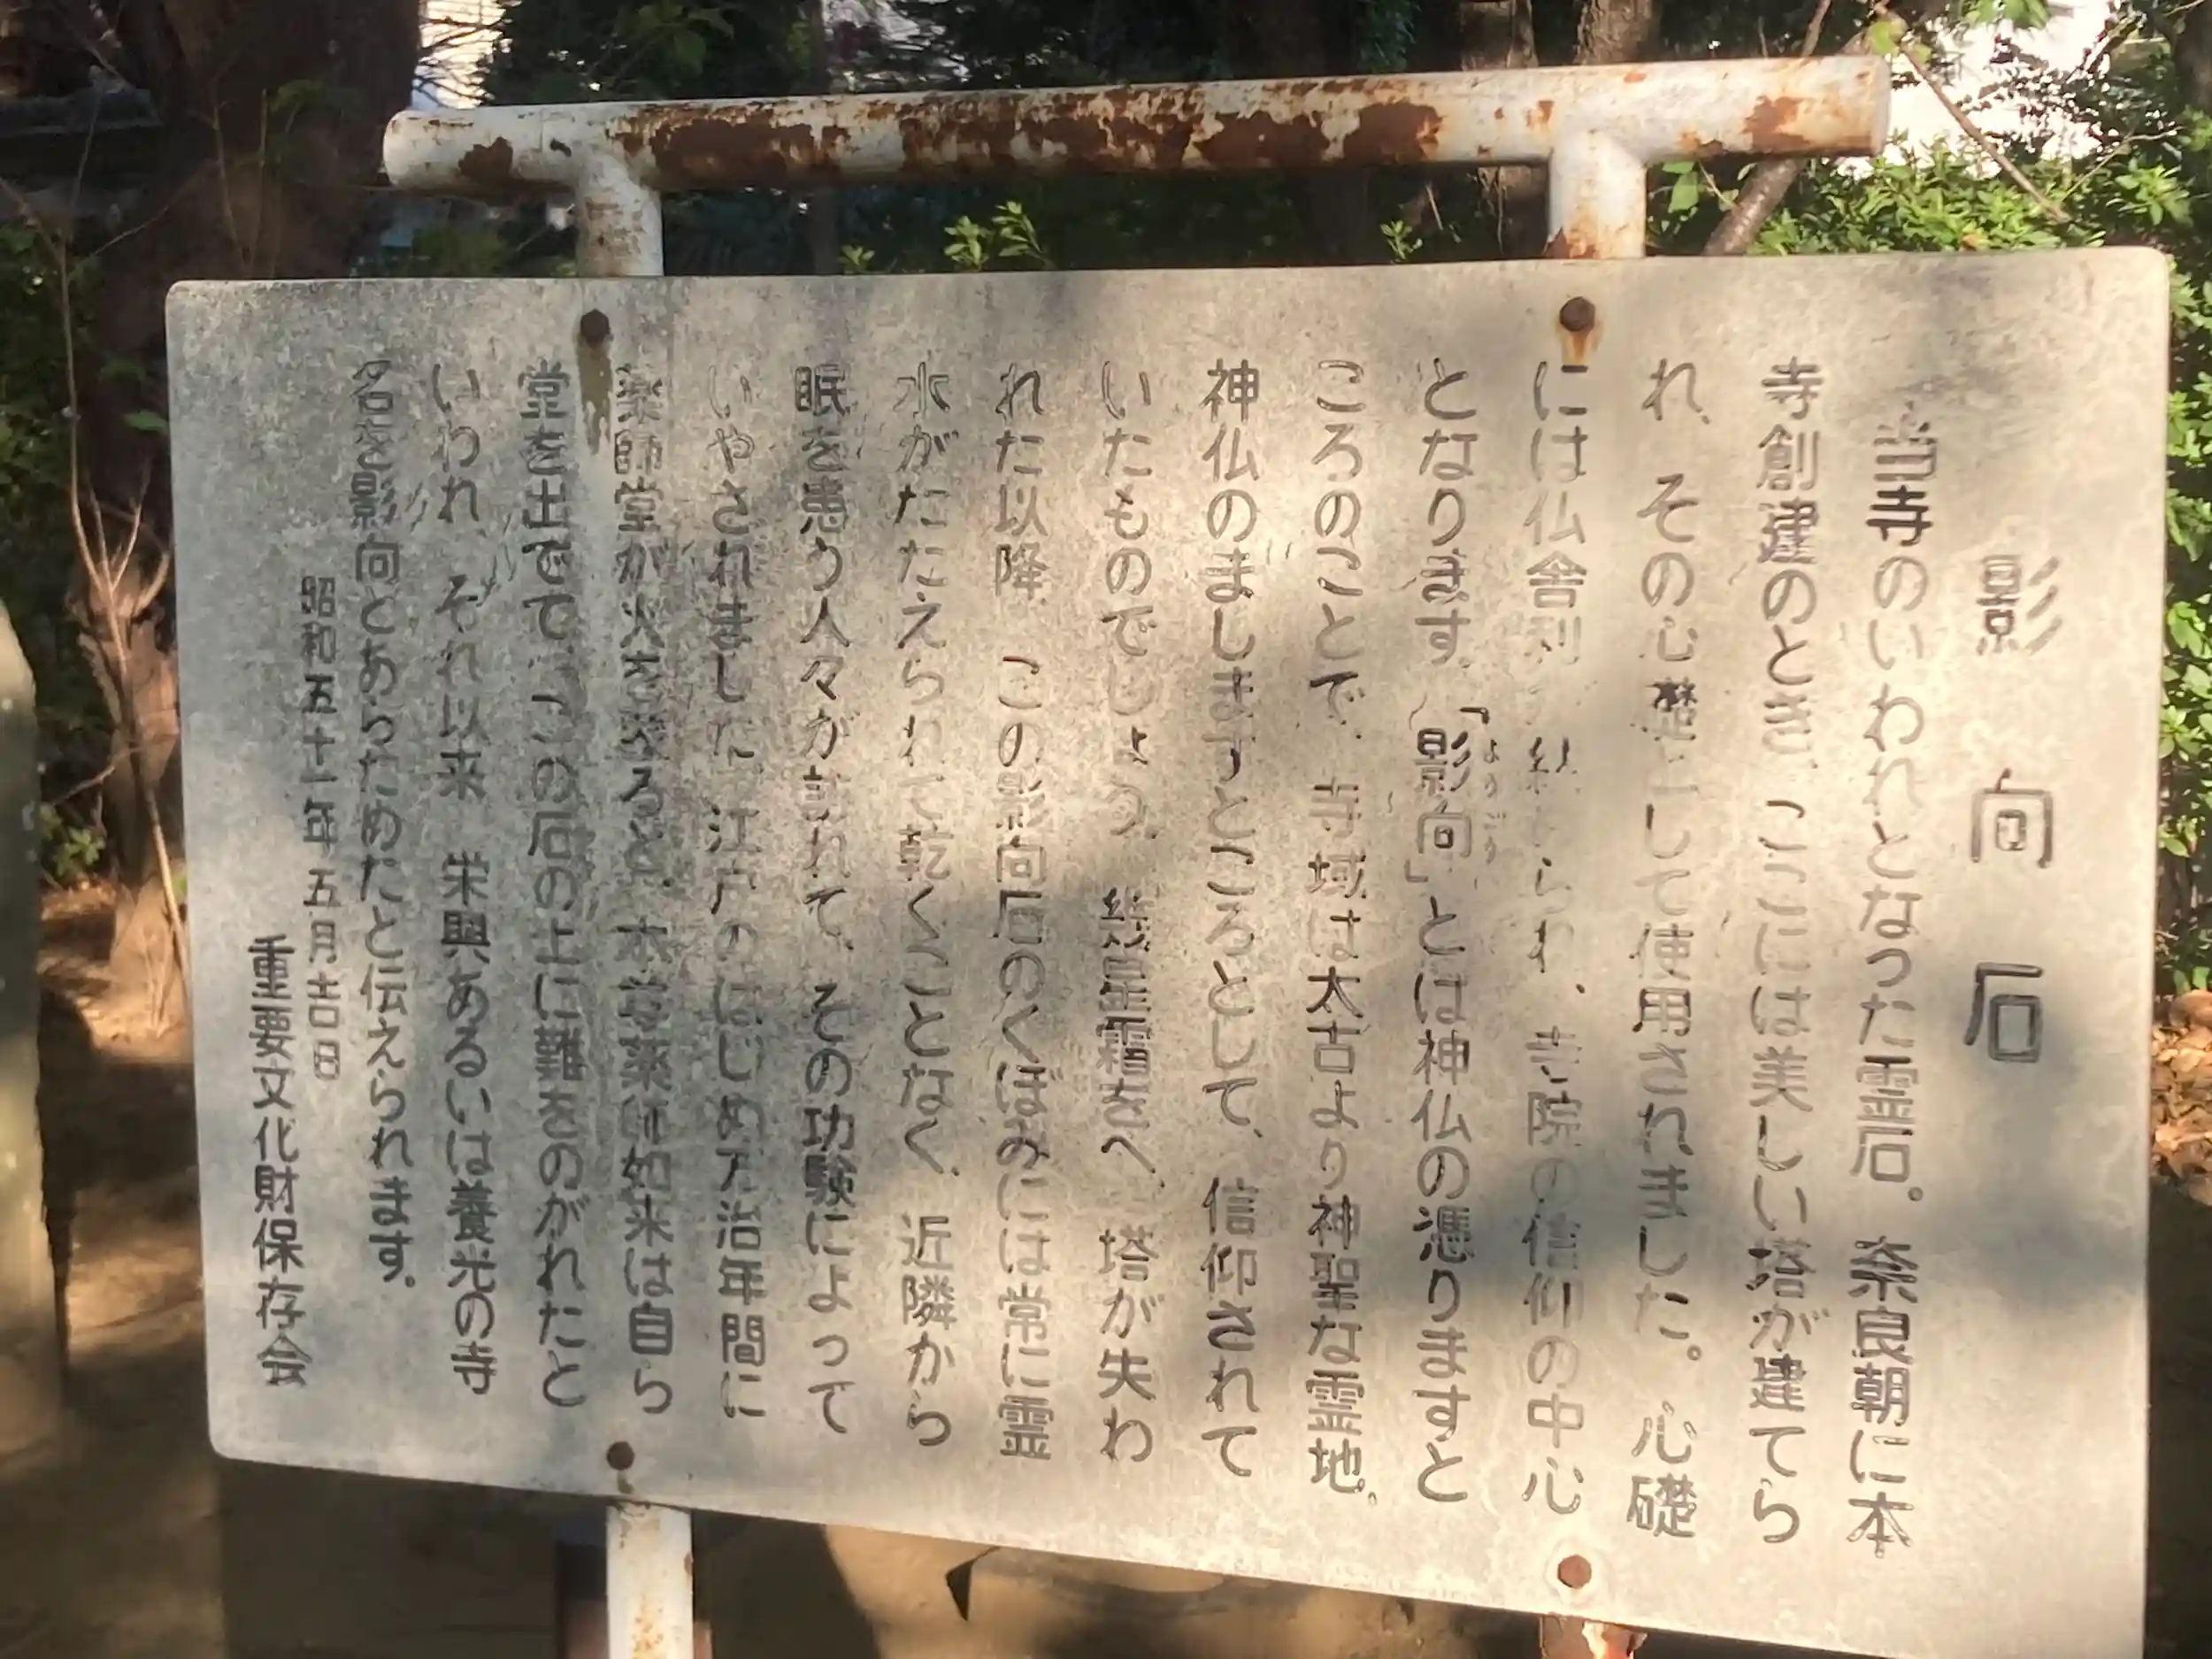 影向石
当寺のいわれとなった霊石。奈良朝に本
寺創建のとき、ここには美しい塔が建てら
れ、その心礎として使用されました。心礎
には仏舎利が納められ、寺院の信仰の中心
となります。「影向」とは神仏の憑りますと
ようごう
ころのことで、寺域は太古より神聖な霊地。
神仏のましますところとして、信仰されて
いたものでしょう。幾星霜をへ、塔が失わ
れた以降、この影向石のくぼみには常に霊
水がたたえられて乾くことなく、近隣から
眼を患う人々が訪れて、その功験によって
いやされました。江戸のはじめ万治年間に
薬師堂が火を蒙ると、本尊薬師如来は自ら
堂を出でて、この石の上に難をのがれたと
いわれ、それ以来、栄興あるいは養光の寺
名を影向とあらためたと伝えられます。
昭和五十一年五月吉日
重要文化財保存会